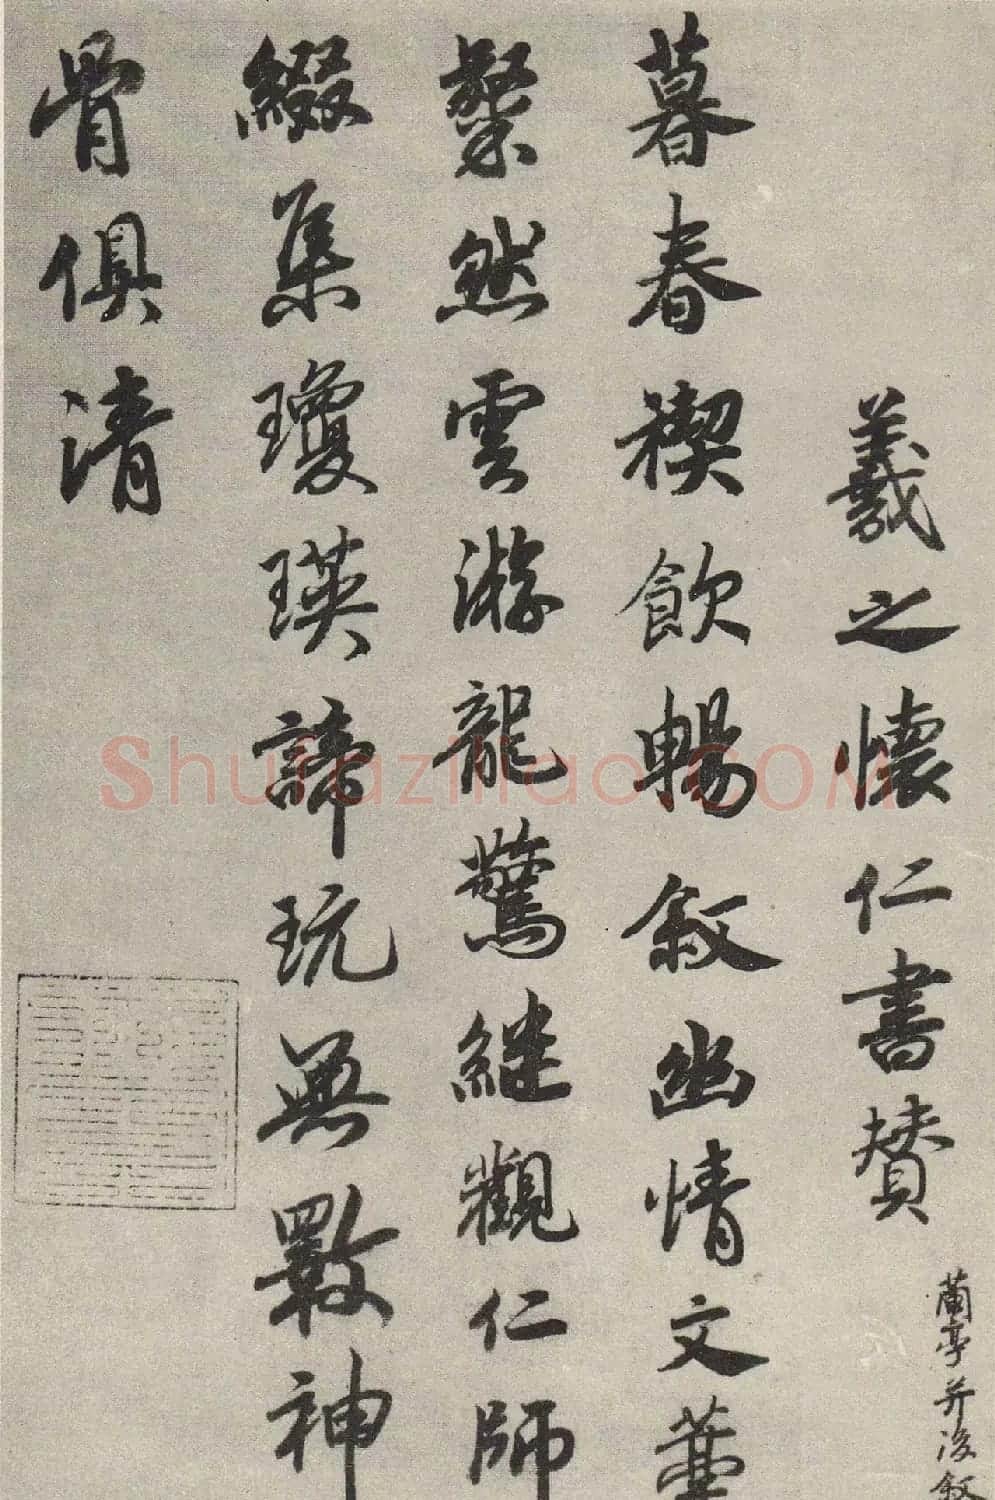 羲之懷仁書贊
蘭亭并後叙
暮春禊飲暢叙幽情文華
粲然雲游龍驚継觀仁師
綴集瓊瑛諦玩無斁神
骨俱清
Shufaziliao.COM